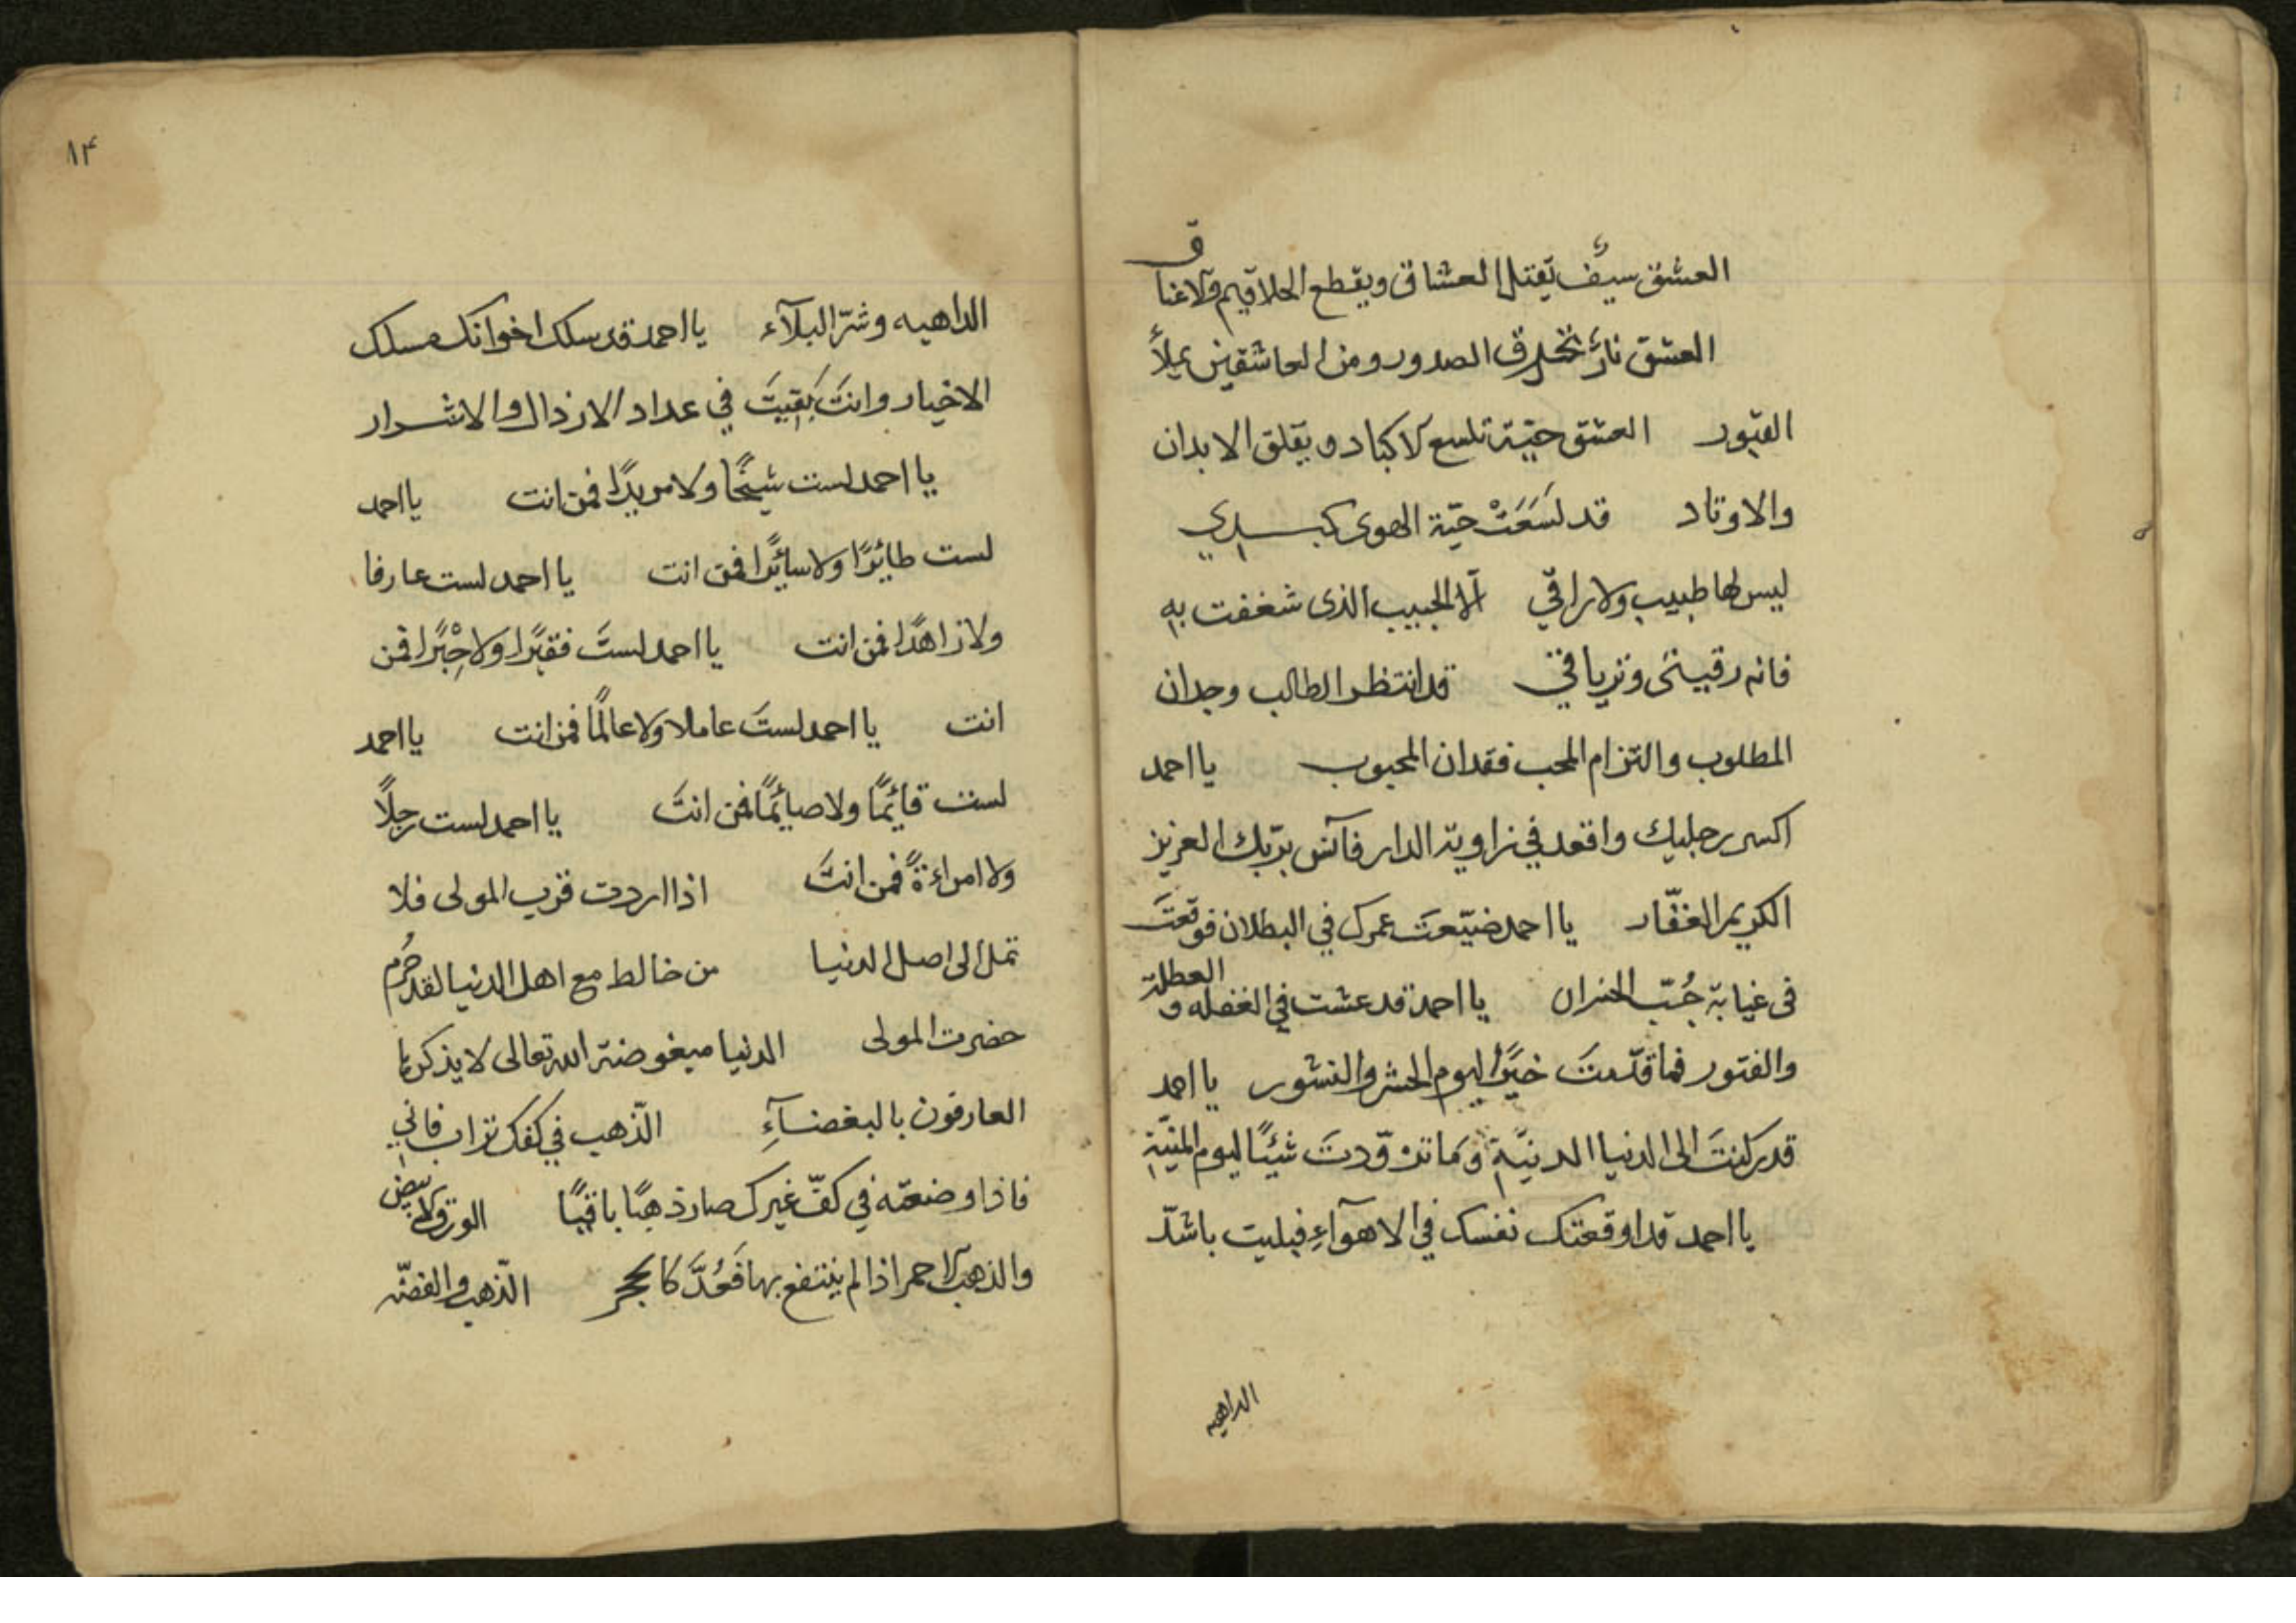 العشق سيفٌ يَقتل العشاق ويقطع الحلاقيم والاعناق
العشق نارٌ تحرق الصدور ومن العاشقين يملأ
القبور العشق حيّة تلسع الاكباد ويقلق الابدان
والاوتاد قد لَسَعَتْ حيّة الهوى كبدي
ليس لها طبيب ولا راقي الا الحبيب الذى شغفت به
فانه رقيتى وترياقي قد انتظر الطالب وجدان
المطلوب والتزام المحب فقدان المحبوب يا احمد
اكسر رجليك واقعد في زاوية الدار فآنس بربّك العزيز
الكريم الغفّار يا احمد ضيّعتَ عمرك في البطلان فوقعتَ
فى غيابة جُبّ الخسران يا احمد قد عشت في الغفله و العطلة
والفتور فما قدّمتَ خيرًا ليوم الحشر والنشور يا احمد
قد ركنتَ الى الدنيا الدنيّة وَما تزوّدتَ شيئًا ليوم المنيّة
يا احمد قد اوقعتك نفسك في الاهوآءِ فبليت باشدّ
الداهيه
۸۴
الداهيه وشرّ البلآء يا احمد قد سلك اخوانك مسلك
الاخيار وانتَ بَقيتَ في عداد الارذال والاشرار
يا احمد لست شيخًا ولا مريدًا فمن انت يا احمد
لست طائرًا ولا سائرًا فمن انت يا احمد لست عارفا
ولا زاهدًا فمن انت يا احمد لستَ فقيرًا ولا حِبْرًا فمن
انت يا احمد لستَ عاملا ولا عالمًا فمن انت يا احمد
لست قائمًا ولا صائمًا فمن انتَ يا احمد لست رجلاً
ولا امراءةً فمن انتَ اذا اردت قرب المولى فلا
تمل الى اصل الدنيا من خالط مع اهل الدنيا لقد حُرم
حضرت المولى الدنيا مبغوضة الله تعالى لا يذكرها
العارفون بالبغضآءِ الذّهب في كفك تراب فاني
فاذا وضعته في كفّ غيرك صار ذهبًا باقيًا الورق الابيض
والذهب الاحمر اذا لم ينتفع بها فَعُدَّ كالحجر الذّهب والفضّه